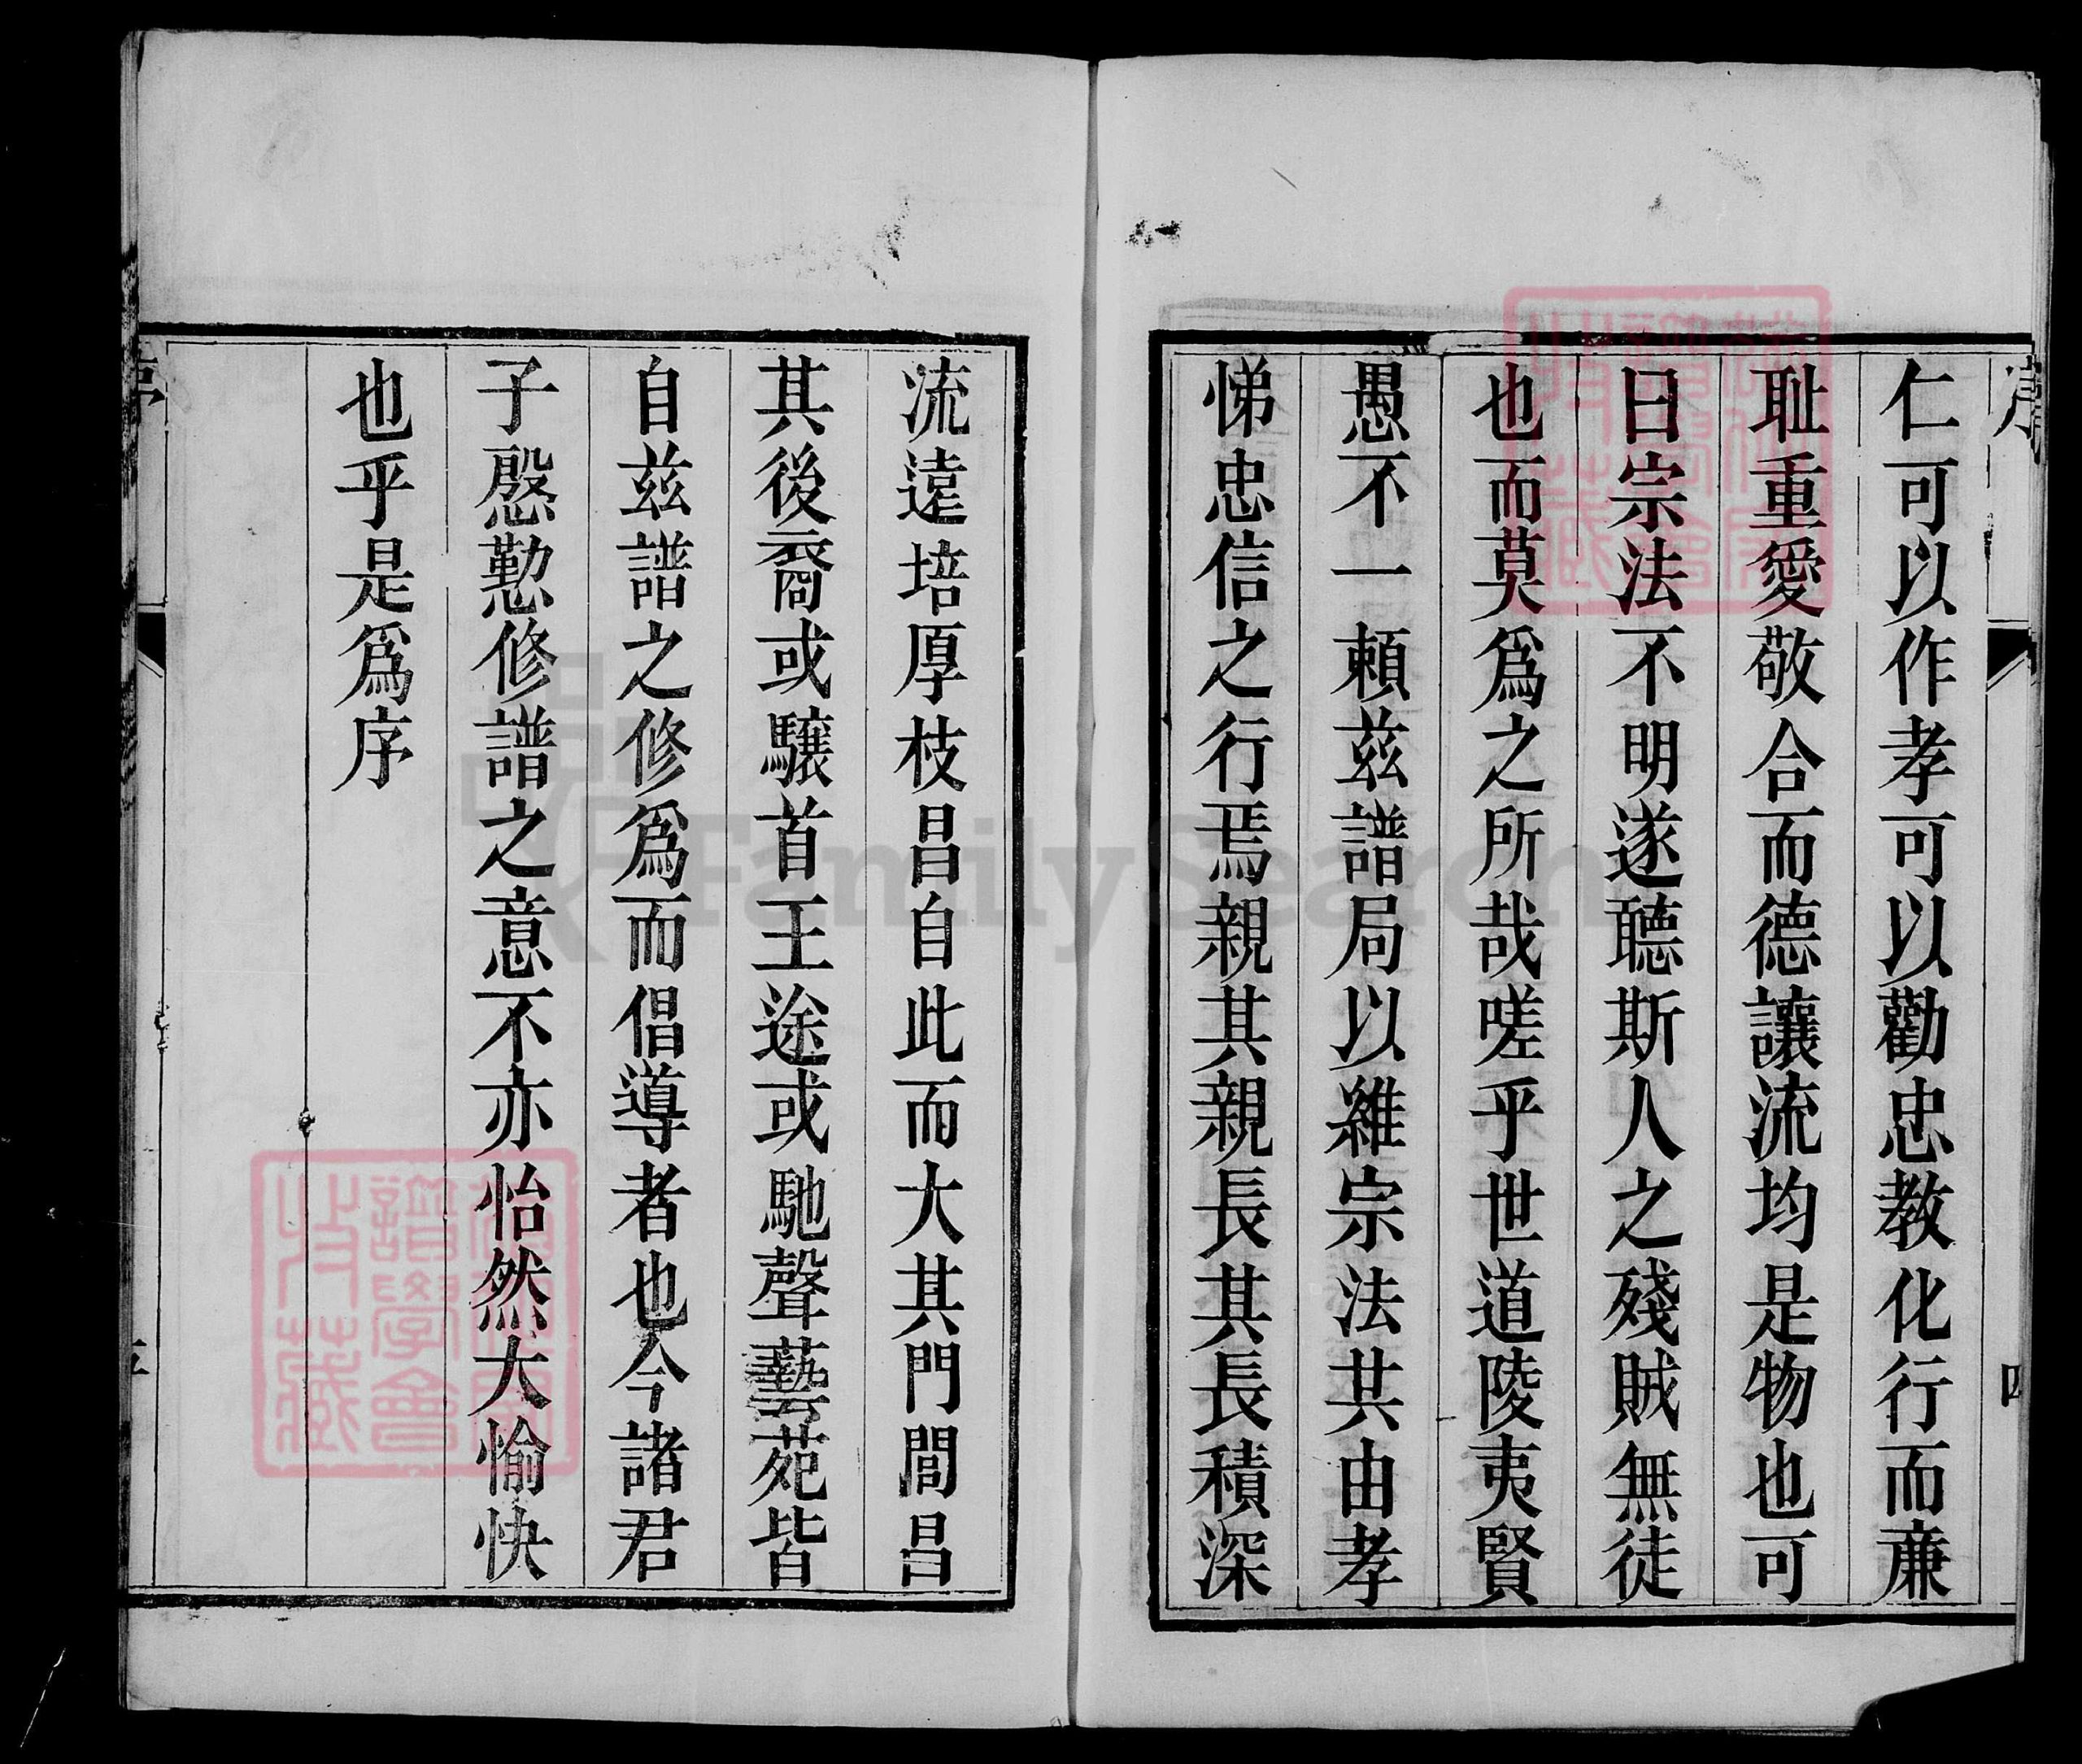 序
四
仁可以作孝可以勸忠教化行而亷
耻重愛敬合而德讓流均是物也可
曰宗法不明遂聽斯人之殘賊無徒
也而莫爲之所哉嗟乎世道陵夷賢
愚不一頼兹譜局以維宗法共由孝
悌忠信之行焉親其親長其長積深
流遠培厚枝昌自此而大其門閭昌
其後裔或驤首王途或馳聲藝苑皆
自兹譜之修爲而倡導者也今諸君
子慇懃修譜之意不亦怡然大愉快
也乎是爲序
FamilySearch
譜學會
收藏